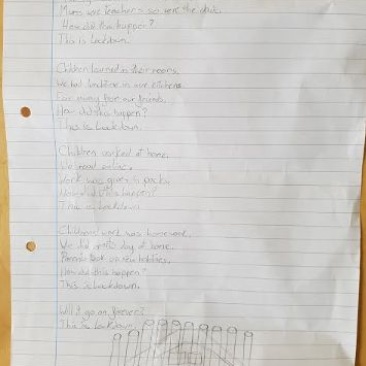 Mums was teachers so were the dads.
How did this happen?
This is lockdown.
Children learned in their rooms,
We had in our kitchens.
Far away from our friends,
How did this happen?
This is lockdown.
Children worked at home,
We read online,
Work was given in packs,
How did this happen?
This is lockdown.
Childrens work was homework,
We did sports day at home,
Parents took up new hobbies,
How did this happen?
This is lockdown.
Will it go on forever?
This is lockdown.